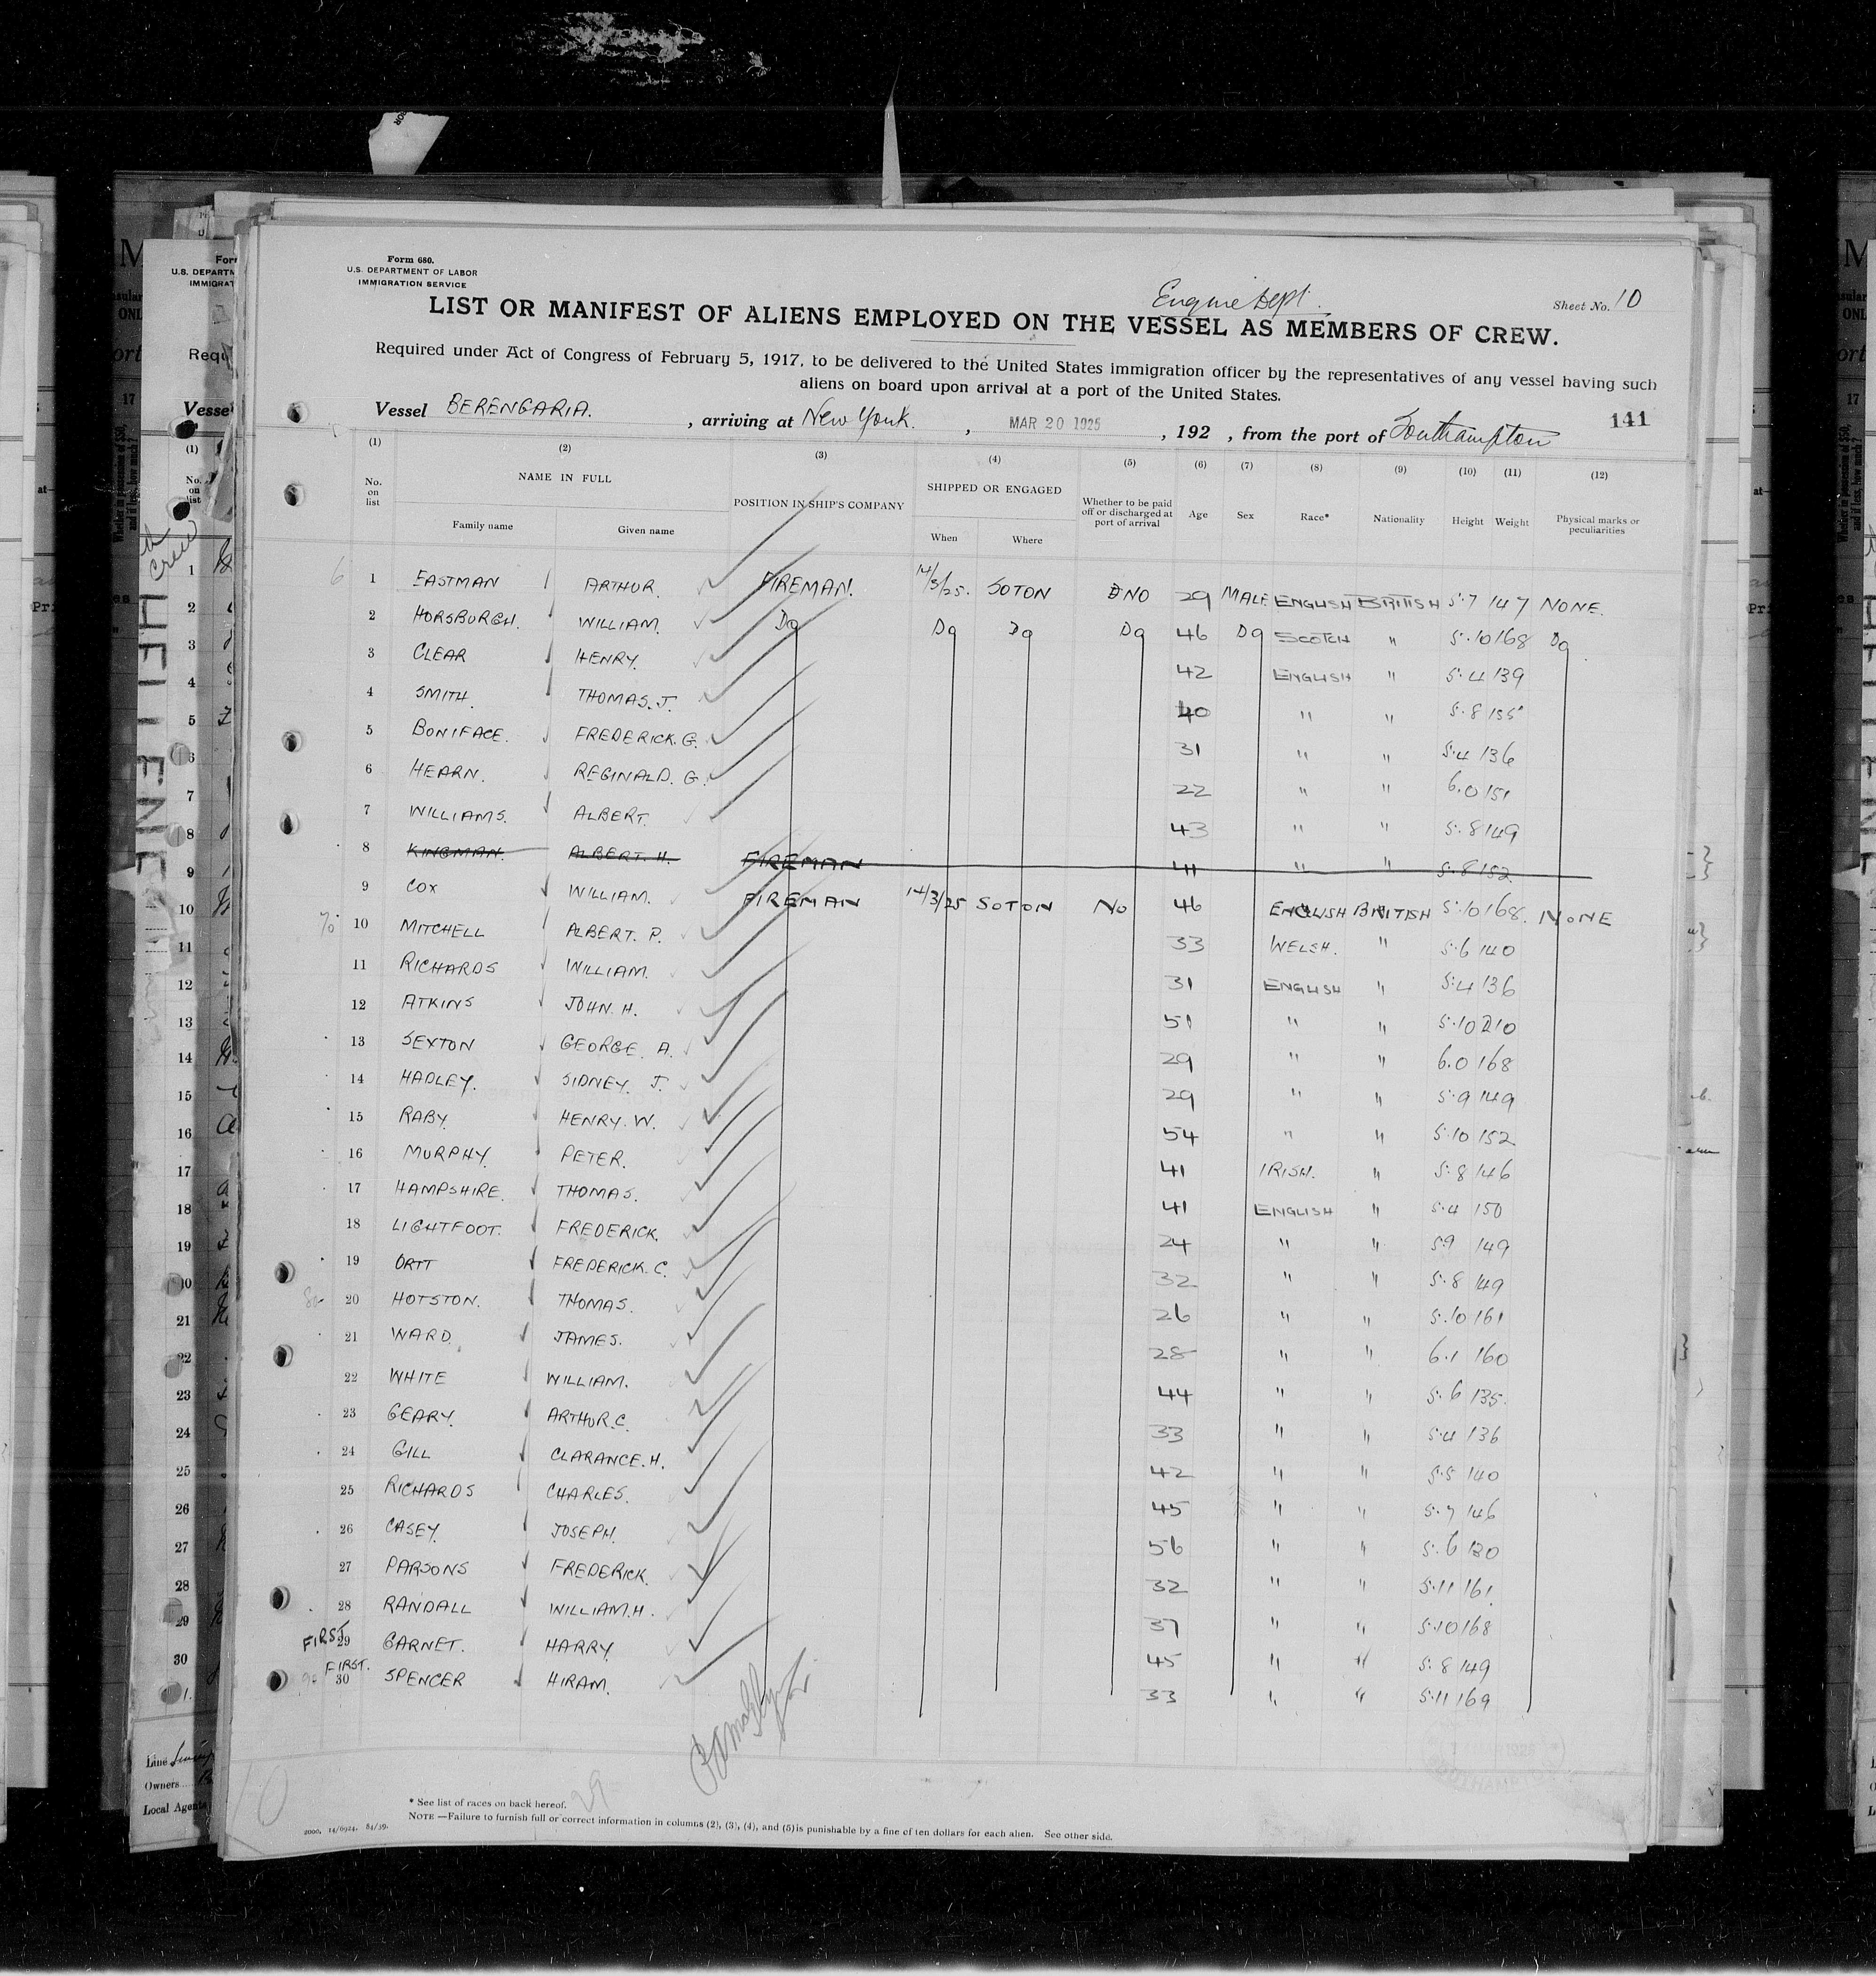 Form 680.
U.S. DEPARTMENT OF LABOR
IMMIGRATION SERVICE
Engine Dept.
Sheet No. 10
LIST OR MANIFEST OF ALIENS EMPLOYED ON THE VESSEL AS MEMBERS OF CREW.
Required under Act of Congress of February 5, 1917, to be delivered to the United States immigration officer by the representatives of any vessel having such
aliens on board upon arrival at a port of the United States.
Vessel BERENGARIA. , arriving at New York. , MAR 20 1925 , 192 , from the port of Southampton 141
(1) (2) (3) (4) (5) (6) (7) (8) (9) (10) (11) (12)
No. on list NAME IN FULL POSITION IN SHIP'S COMPANY SHIPPED OR ENGAGED Whether to be paid off or discharged at port of arrival Age Sex Race* Nationality Height Weight Physical marks or peculiarities
Family name Given name When Where
1 EASTMAN ARTHUR. FIREMAN. 14/3/25. SOTON NO 29 MALE ENGLISH BRITISH 5.7 147 NONE.
2 HORSBURGH. WILLIAM. Do Do Do Do 46 Do SCOTCH " 5.10 168 Do
3 CLEAR HENRY. 42 ENGLISH " 5.4 139
4 SMITH. THOMAS. J. 40 " " 5.8 155
5 BONIFACE. FREDERICK. G. 31 " " 5.4 136
6 HEARN. REGINALD. G. 22 " " 6.0 151
7 WILLIAMS. ALBERT. 43 " " 5.8 149
8 KINGMAN. ALBERT. H. FIREMAN 41 " " 5.8 152
9 COX WILLIAM. FIREMAN 14/3/25 SOTON No 46 ENGLISH BRITISH 5.10 168. NONE
10 MITCHELL ALBERT. P. 33 WELSH. " 5.6 140
11 RICHARDS WILLIAM. 31 ENGLISH " 5.4 136
12 ATKINS JOHN. H. 51 " " 5.10 210
13 SEXTON GEORGE. A. 29 " " 6.0 168
14 HADLEY. SIDNEY. J. 29 " " 5.9 149
15 RABY. HENRY. W. 54 " " 5.10 152
16 MURPHY. PETER. 41 IRISH. " 5.8 146
17 HAMPSHIRE. THOMAS. 41 ENGLISH " 5.4 150
18 LIGHTFOOT. FREDERICK. 24 " " 5.9 149
19 ORTT FREDERICK. C. 32 " " 5.8 149
20 HOTSTON. THOMAS. 26 " " 5.10 161
21 WARD. JAMES. 28 " " 6.1 160
22 WHITE WILLIAM. 44 " " 5.6 135.
23 GEARY. ARTHUR. C. 33 " " 5.4 136
24 GILL CLARANCE. H. 42 " " 5.5 140
25 RICHARDS CHARLES. 45 " " 5.7 146
26 CASEY. JOSEPH. 56 " " 5.6 130
27 PARSONS FREDERICK. 32 " " 5.11 161
28 RANDALL WILLIAM. H. 37 " " 5.10 168
FIRST 29 GARNET. HARRY. 45 " " 5.8 149
FIRST. 30 SPENCER HIRAM. 33 " " 5.11 169
10
29
* See list of races on back hereof.
NOTE —Failure to furnish full or correct information in columns (2), (3), (4), and (5) is punishable by a fine of ten dollars for each alien. See other side.
2000. 14/6924. 84/39.